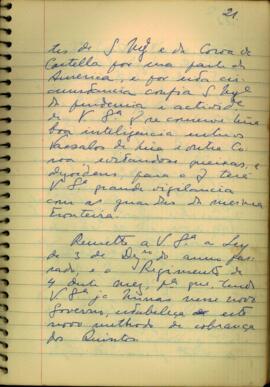 21
tes de S. Mg.e e da Coroa de
Castella por uma parte da
America, e por esta cir
cunstância confia S. Mg.e
da prudencia e actividade
de V. S.ª q̃ se conserve uma
boa inteligencia entre os
Vassalos de hua e outra Co
roa evitandose queixas, e
dezordens, para o q̃ terá
V. S.ª grande vigilancia
com as guardas da mesma
fronteira.
Remetto a V. S.ª a Ley
de 3 de Dez.ro do anno pas
sado, e o Regimento de
4 deste mez, p.ª que, tendo
V. S.ª já Minas nesse novo
Governo, estabeleça este
novo methodo de cobrança
dos Quintos